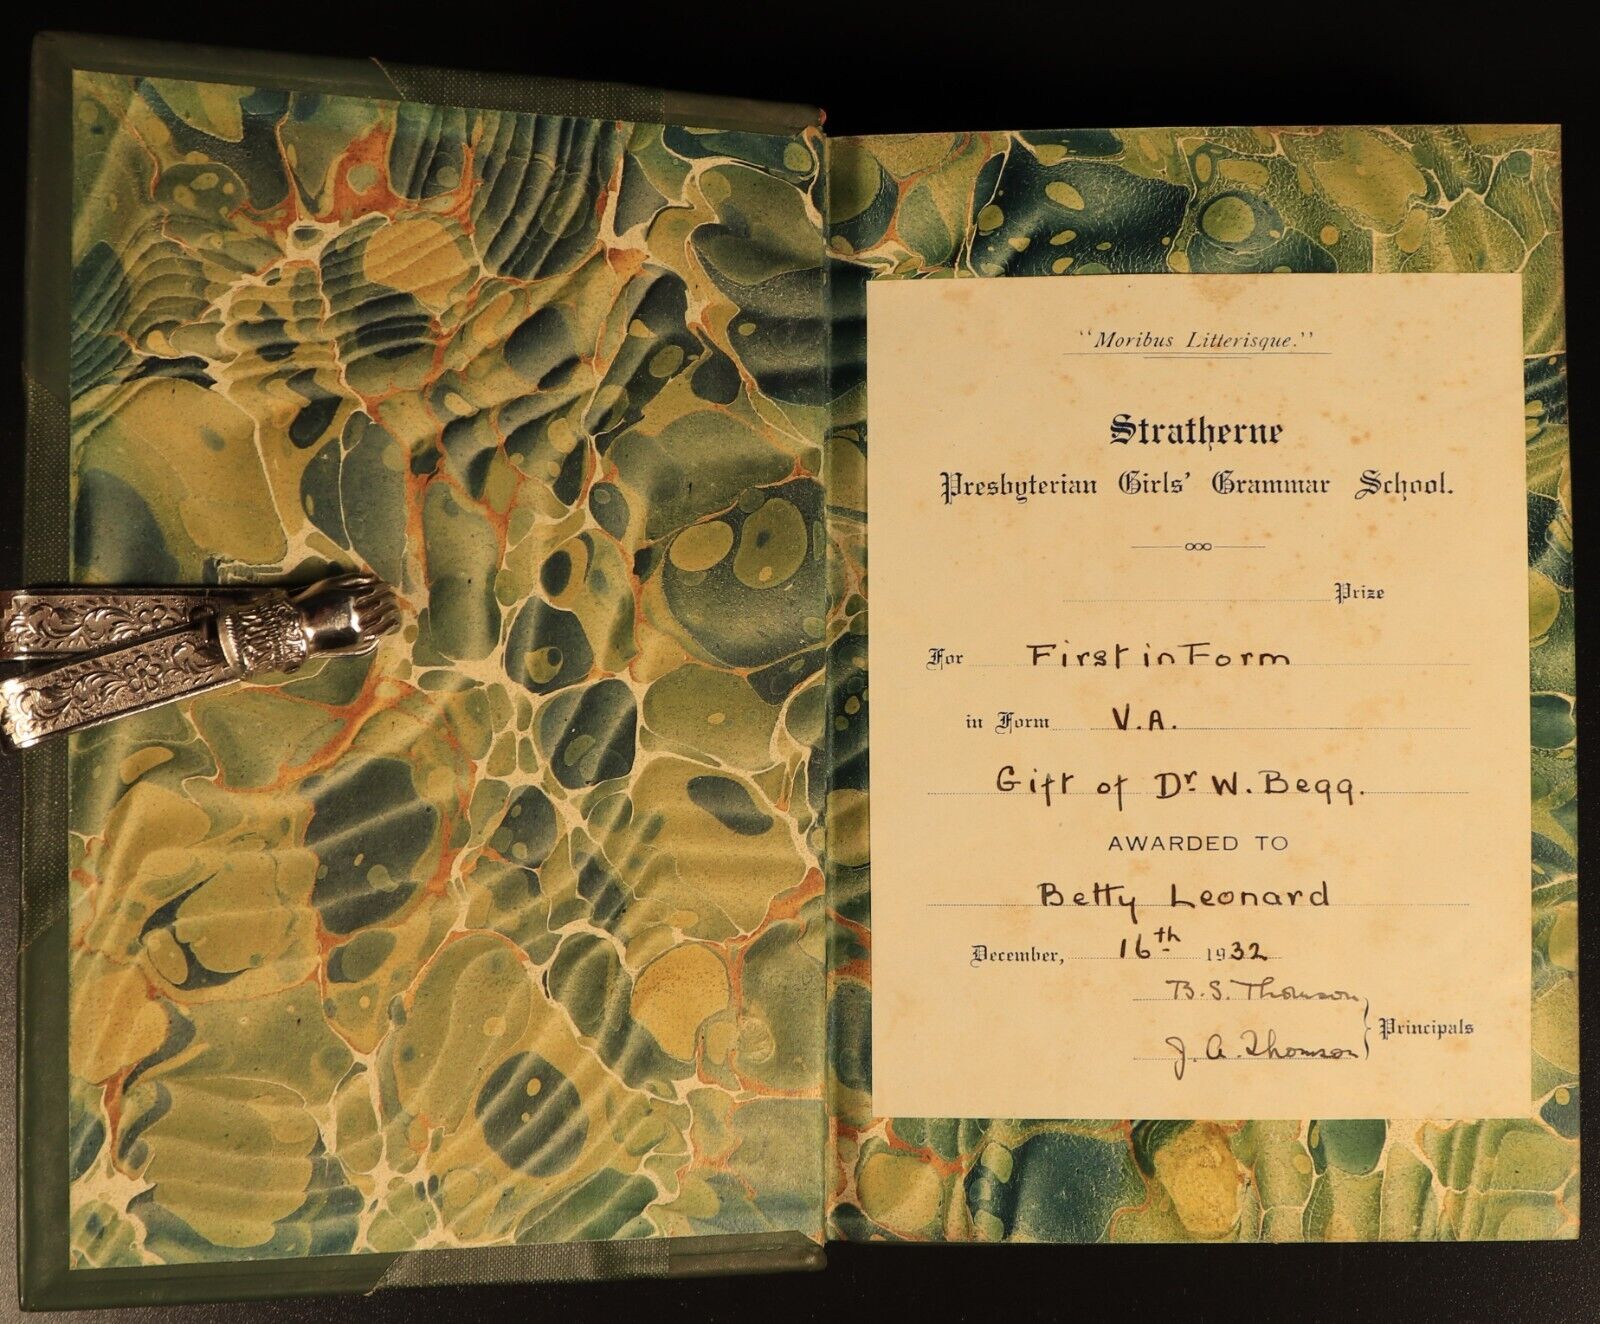 "Moribus Litterisque."
Stratherne
Presbyterian Girls' Grammar School.
Prize
For First in Form
in Form V.A.
Gift of Dr. W. Begg.
AWARDED TO
Betty Leonard
December, 16th 1932
B. S. Thomson
J. A. Thomson
Principals